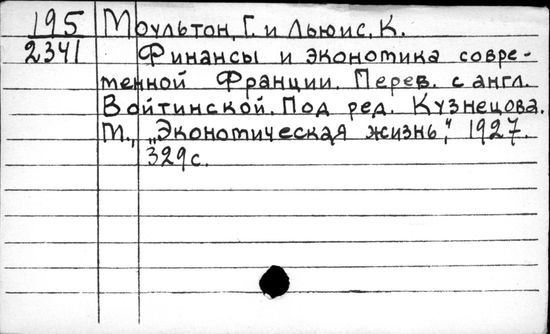 195 Моультон, Г. и Льюис, К.
2341 Финансы и экономика совре-
менной Франции. Перев. с англ.
Войтинской. Под ред. Кузнецова.
М., „Экономическая жизнь", 1927.
329с.